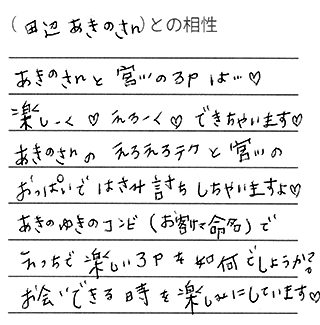 (田辺あきのさん)との相性
あきのさんと宮ツの3Pは…♡
楽しーく♡えろーく♡できちゃいます♡
あきのさんのえろえろテクと宮ツの
おっぱいではさみ討ちしちゃいますよ♡
あきのゆきのコンビ(お割命名)で
えっちで楽しい3Pを如何でしょうか?
お会いできる時を楽しみにしています♡